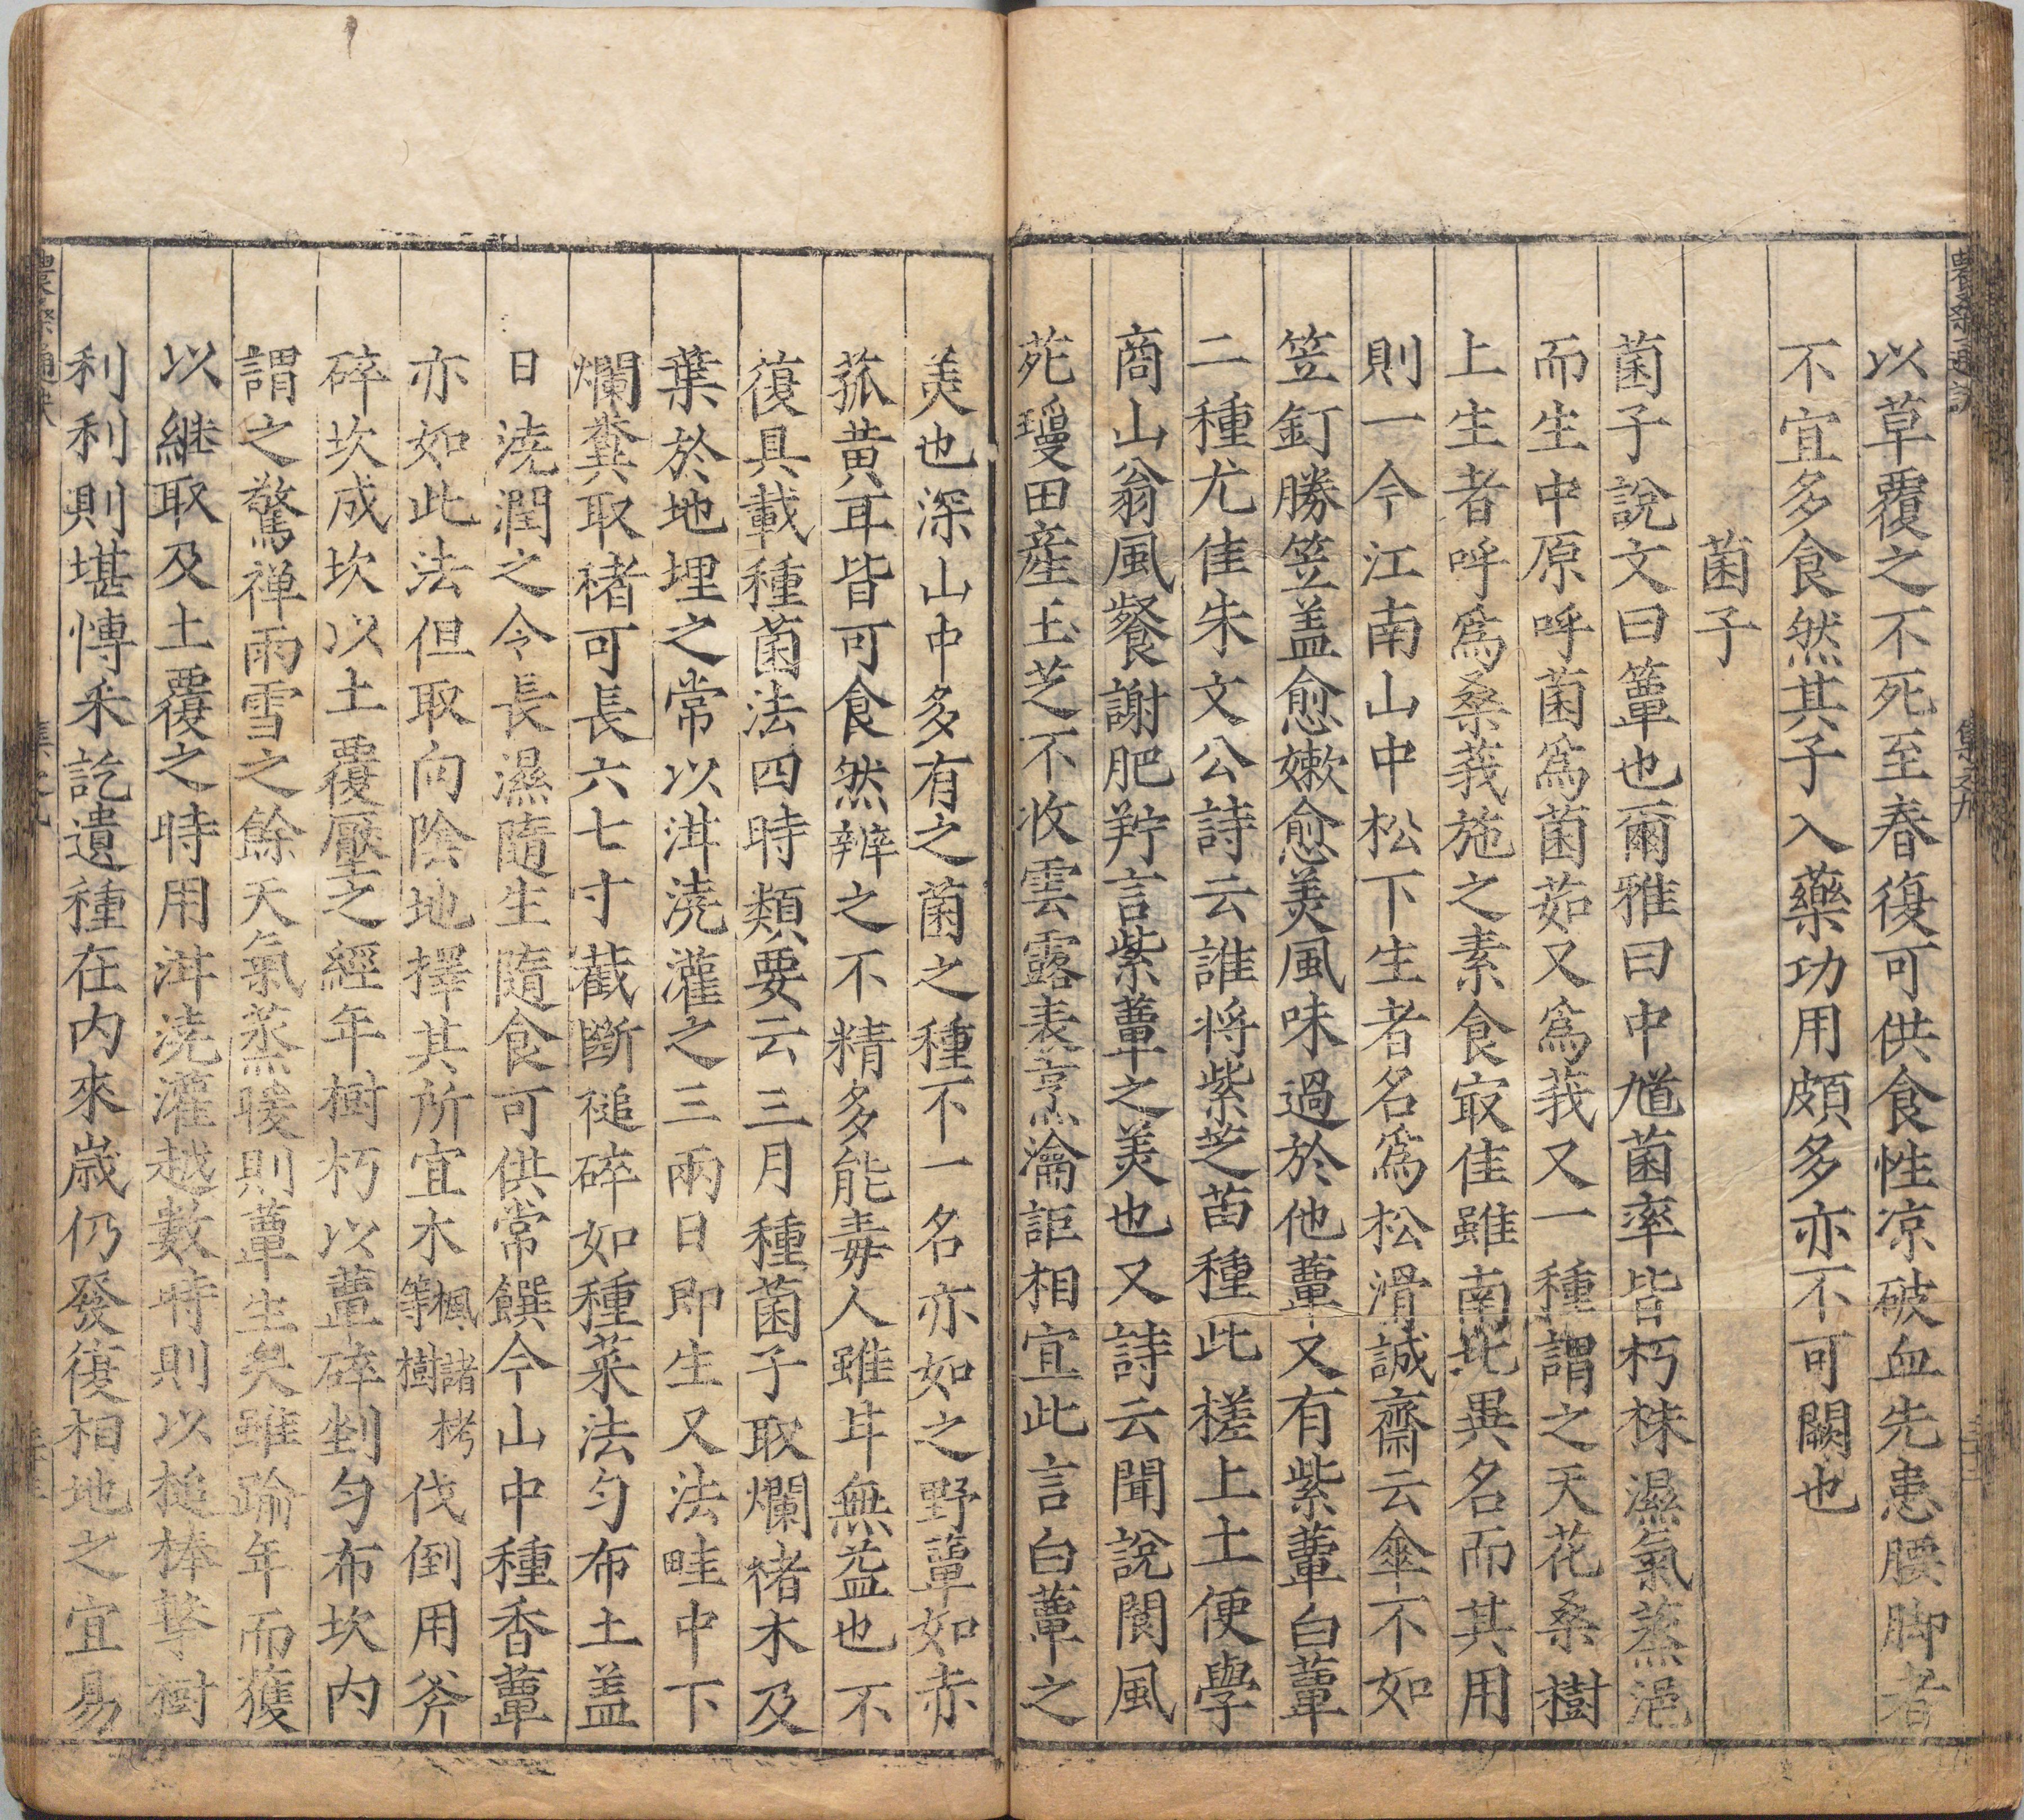 以草覆之不死至春復可供食性凉破血先患腰脚者
不宜多食然其子入藥功用頗多亦不可闕也
菌子
菌子說文曰蕈也爾雅曰中馗菌率皆朽株濕氣蒸浥
而生中原呼菌為菌茹又為莪又一種謂之天花桑樹
上生者呼為桑莪施之素食冣佳雖南北異名而其用
則一今江南山中松下生者名為松滑誠齋云傘不如
笠釘勝笠盖愈嫰愈美風味過於他蕈又有紫蕈白蕈
二種尤佳朱文公詩云誰將紫芝苗種此槎上土便學
商山翁風餐謝肥羜言紫蕈之美也又詩云聞說閬風
苑瓊田産玉芝不收雲露表烹瀹詎相宜此言白蕈之
美也深山中多有之菌之種不一名亦如之野蕈如赤
菰黄耳皆可食然辨之不精多能毒人雖甘無益也不
復具載種菌法四時類要云三月種菌子取爛楮木及
葉於地埋之常以泔澆灌之三兩日即生又法畦中下
爛糞取楮可長六七寸截斷磓碎如種菜法匀布土盖
日澆潤之令長濕隨生隨食可供常饌今山中種香蕈
亦如此法但取向陰地擇其所宜木楓諸栲等樹伐倒用斧
碎坎成坎以土覆壓之經年樹朽以蕈碎剉匀布坎内
謂之驚禅雨雪之餘天氣蒸暖則蕈生矣雖踰年而獲
以継取及土覆之時用泔澆灌越數時則以槌棒擊樹
利利則堪慱采訖遺種在内來歲仍發復相地之宜易